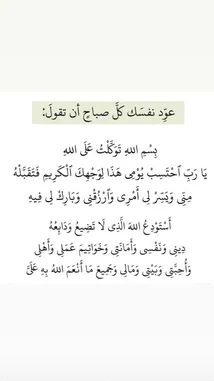 عوّد نفسَك كلَّ صباحٍ أن تقولَ:
بِسْمِ اللهِ تَوَكَّلْتُ عَلَى اللهِ
يَا رَبِّ احْتَسِبْ يَوْمِي هَذَا لِوَجْهِكَ الْكَرِيمِ فَتَقَبَّلْهُ
مِنِّي وَيَسِّرْ لِي أَمْرِي وَارْزُقْنِي وَبَارِكْ لِي فِيهِ
أَسْتَوْدِعُ اللهَ الَّذِي لَا تَضِيعُ وَدَائِعُهُ
دِينِي وَنَفْسِي وَأَمَانَتِي وَخَوَاتِيمَ عَمَلِي وَأَهْلِي
وَأَحِبَّتِي وَبَيْتِي وَمَالِي وَجَمِيعَ مَا أَنْعَمَ اللهُ بِهِ عَلَيَّ